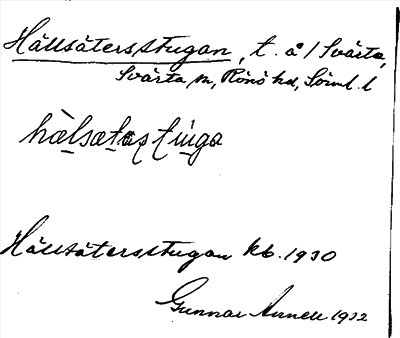 Hällsätersstugan, t. å / Svärta,
Svärta sn, Rönö hd, Sörml. l
hälsatastuga
Hällsätersstugan kb. 1930
Gunnar Arnell 1932